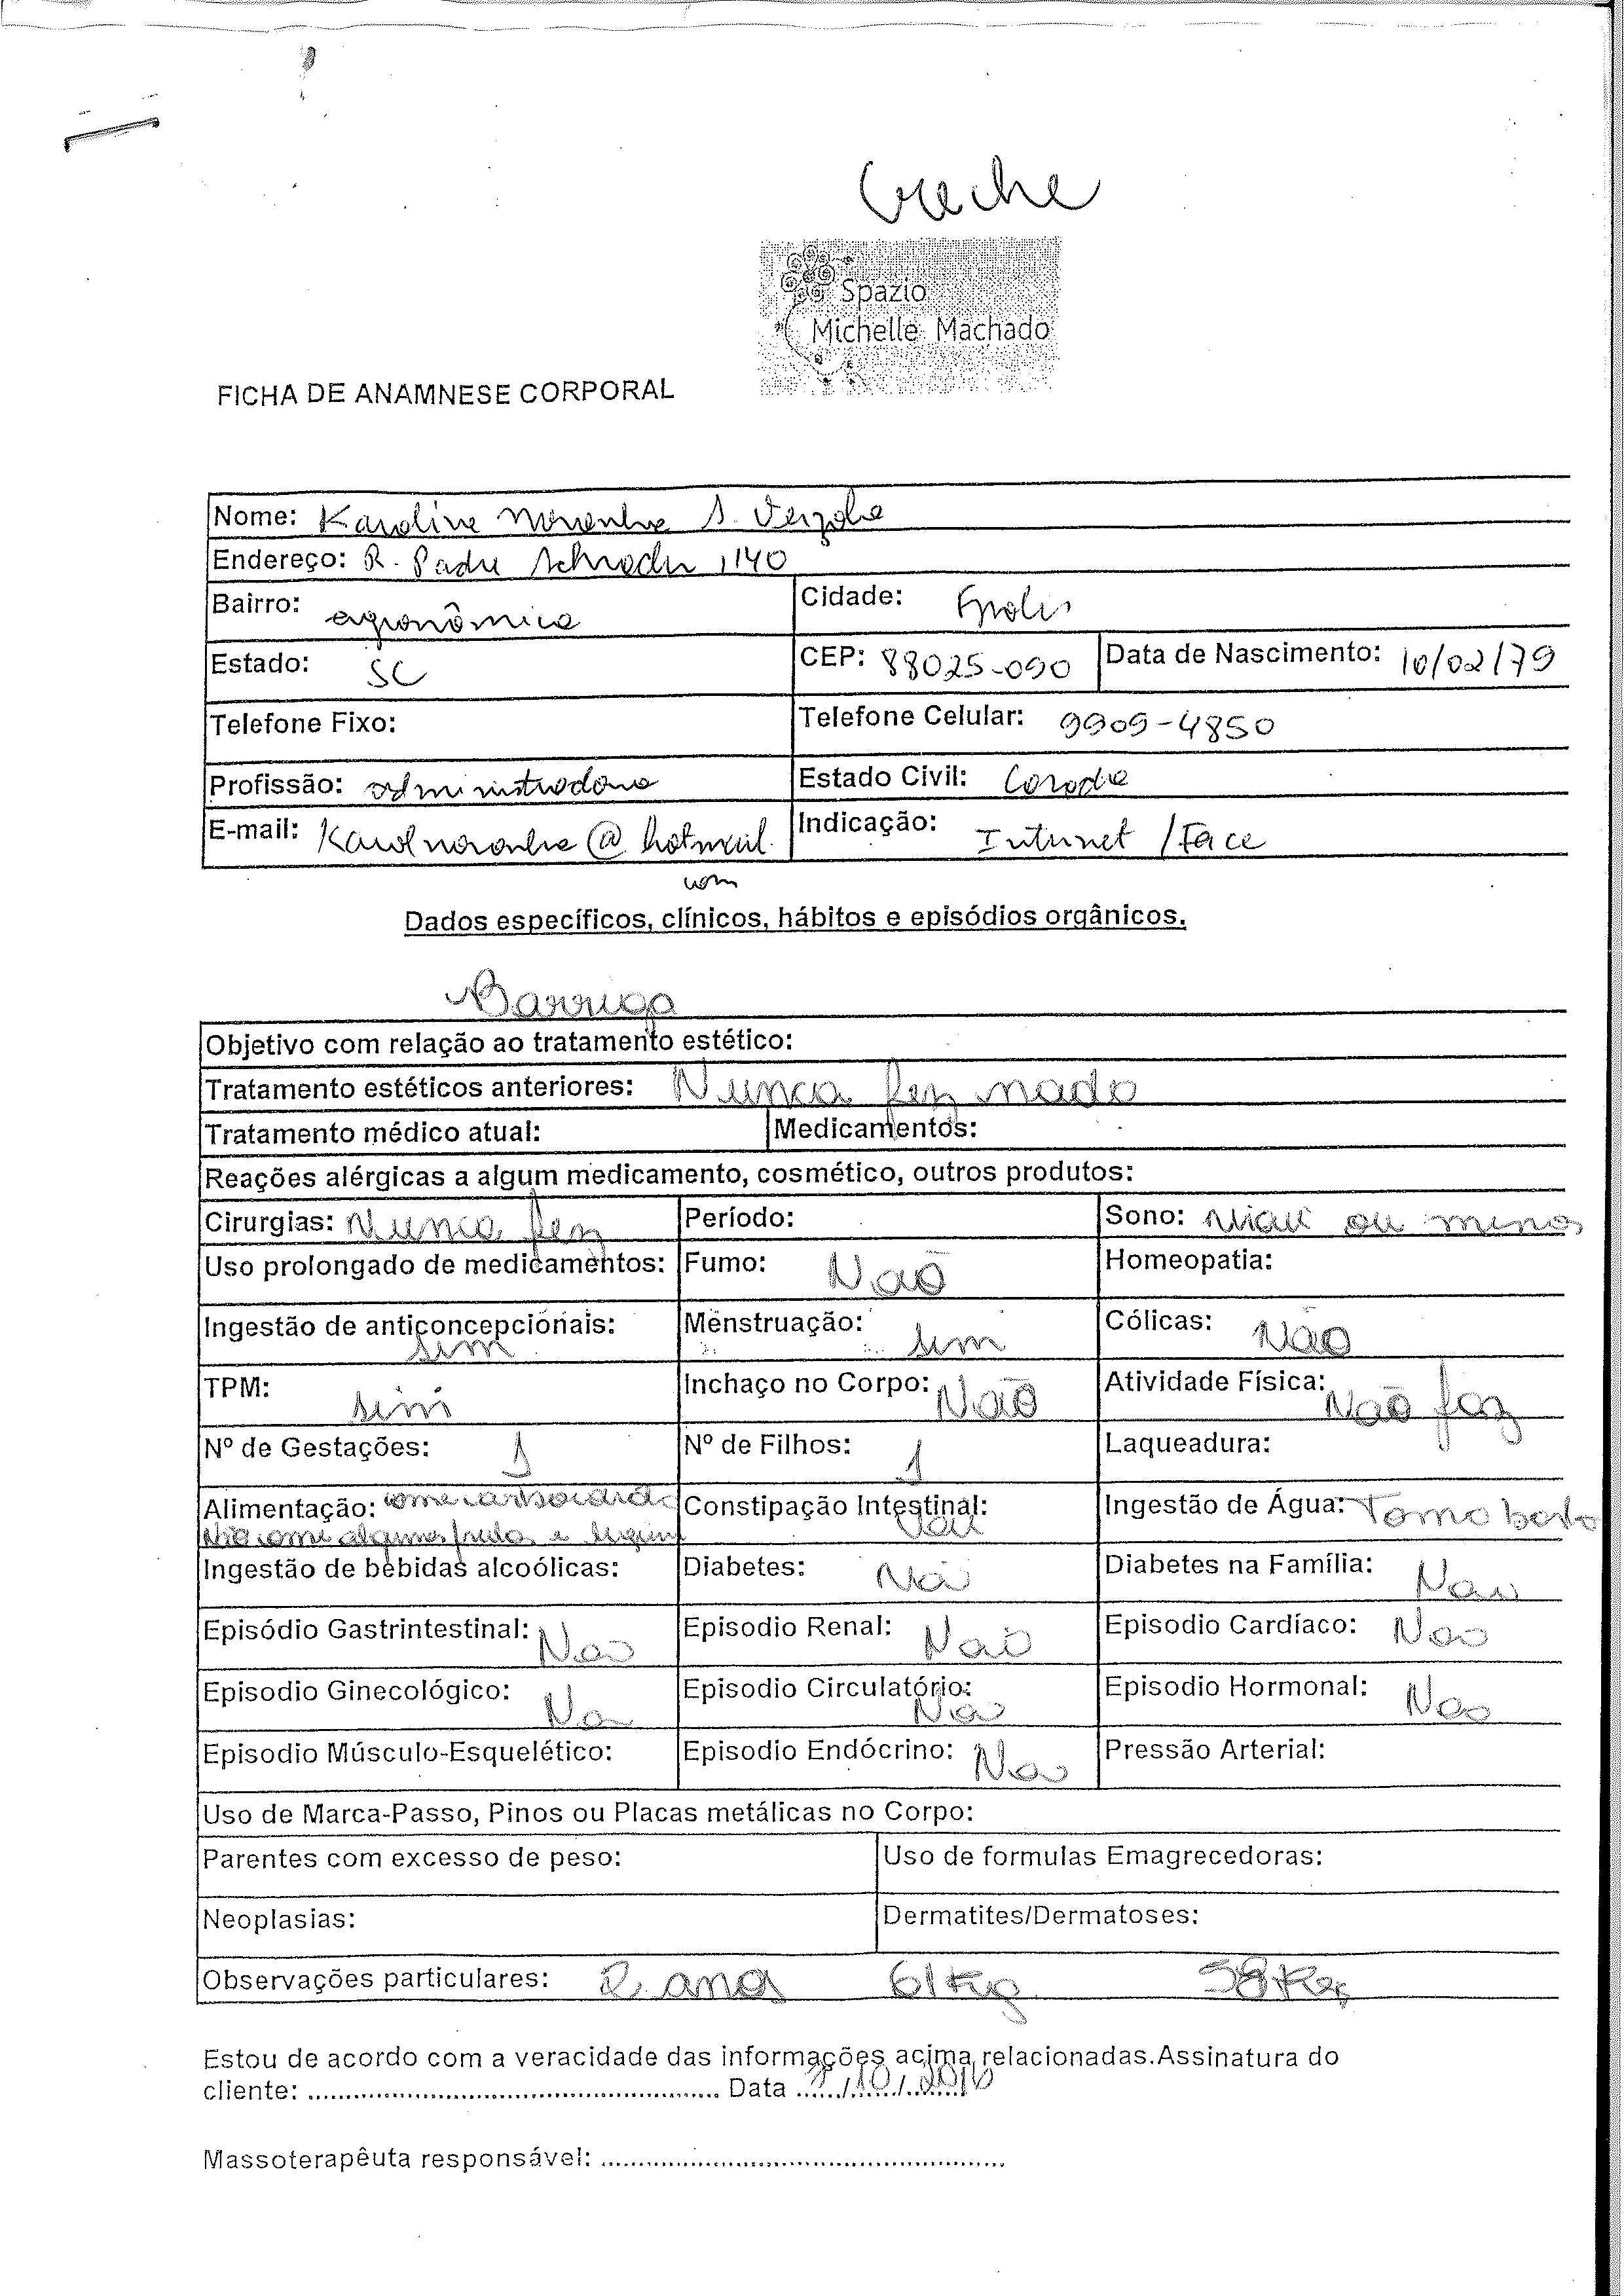 Creche
Spazio
Michelle Machado
FICHA DE ANAMNESE CORPORAL
Nome: Karoline Noronha S. Verzola
Endereço: R. Padre Schroder, 1140
Bairro: agronômica Cidade: Fpolis
Estado: SC CEP: 88025-090 Data de Nascimento: 10/02/79
Telefone Fixo: Telefone Celular: 9909-4850
Profissão: administradora Estado Civil: Casada
E-mail: Karolnoronha@hotmail. Indicação: Internet / Face
com
Dados específicos, clínicos, hábitos e episódios orgânicos.
Barriga
Objetivo com relação ao tratamento estético:
Tratamento estéticos anteriores: Nunca fez nado
Tratamento médico atual: Medicamentos:
Reações alérgicas a algum medicamento, cosmético, outros produtos:
Cirurgias: Nunca fez Período: Sono: Mais ou menos
Uso prolongado de medicamentos: Fumo: Não Homeopatia:
Ingestão de anticoncepcionais: sim Menstruação: sim Cólicas: Não
TPM: sim Inchaço no Corpo: Não Atividade Física: Não faz
Nº de Gestações: 1 Nº de Filhos: 1 Laqueadura:
Alimentação: come carboidrato Constipação Intestinal: Ingestão de Água: Toma
Não come algumas frutas e legum
Ingestão de bebidas alcoólicas: Diabetes: Não Diabetes na Família: Não
Episódio Gastrintestinal: Não Episodio Renal: Não Episodio Cardíaco: Não
Episodio Ginecológico: Não Episodio Circulatório: Não Episodio Hormonal: Não
Episodio Músculo-Esquelético: Episodio Endócrino: Não Pressão Arterial:
Uso de Marca-Passo, Pinos ou Placas metálicas no Corpo:
Parentes com excesso de peso: Uso de formulas Emagrecedoras:
Neoplasias: Dermatites/Dermatoses:
Observações particulares: 2 anos 61 Kg 58 Kg
Estou de acordo com a veracidade das informações acima relacionadas.Assinatura do
cliente: ........................................................ Data ....../10/2016
Massoterapêuta responsável: ......................................................